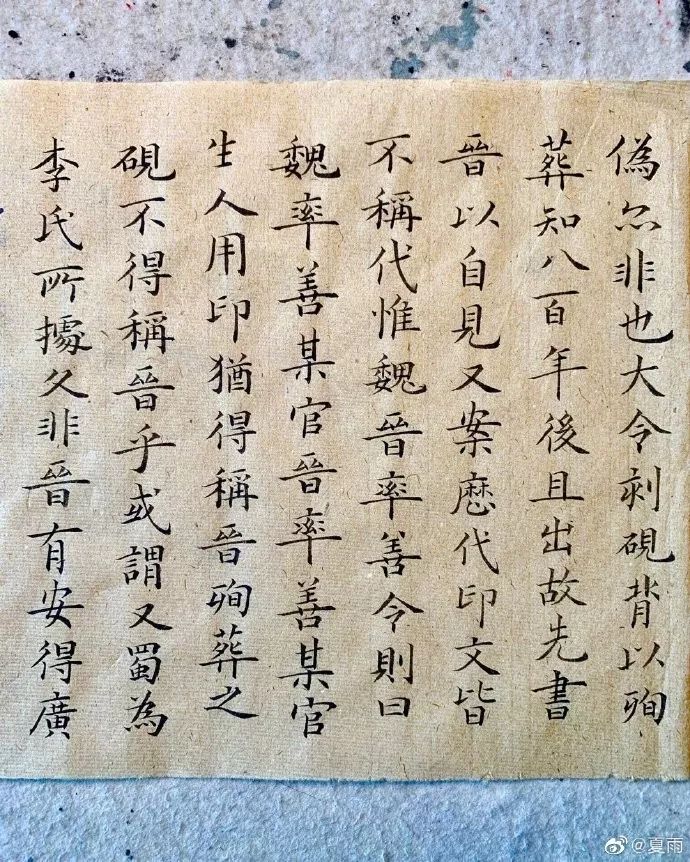 偽亦非也大令刻硯背以殉
葬知八百年後且出故先書
晉以自見又案歷代印文皆
不稱代惟魏晉率善令則曰
魏率善某官晉率善某官
生人用印猶得稱晉殉葬之
硯不得稱晉乎或謂又蜀為
李氏所據久非晉有安得廣
@夏雨